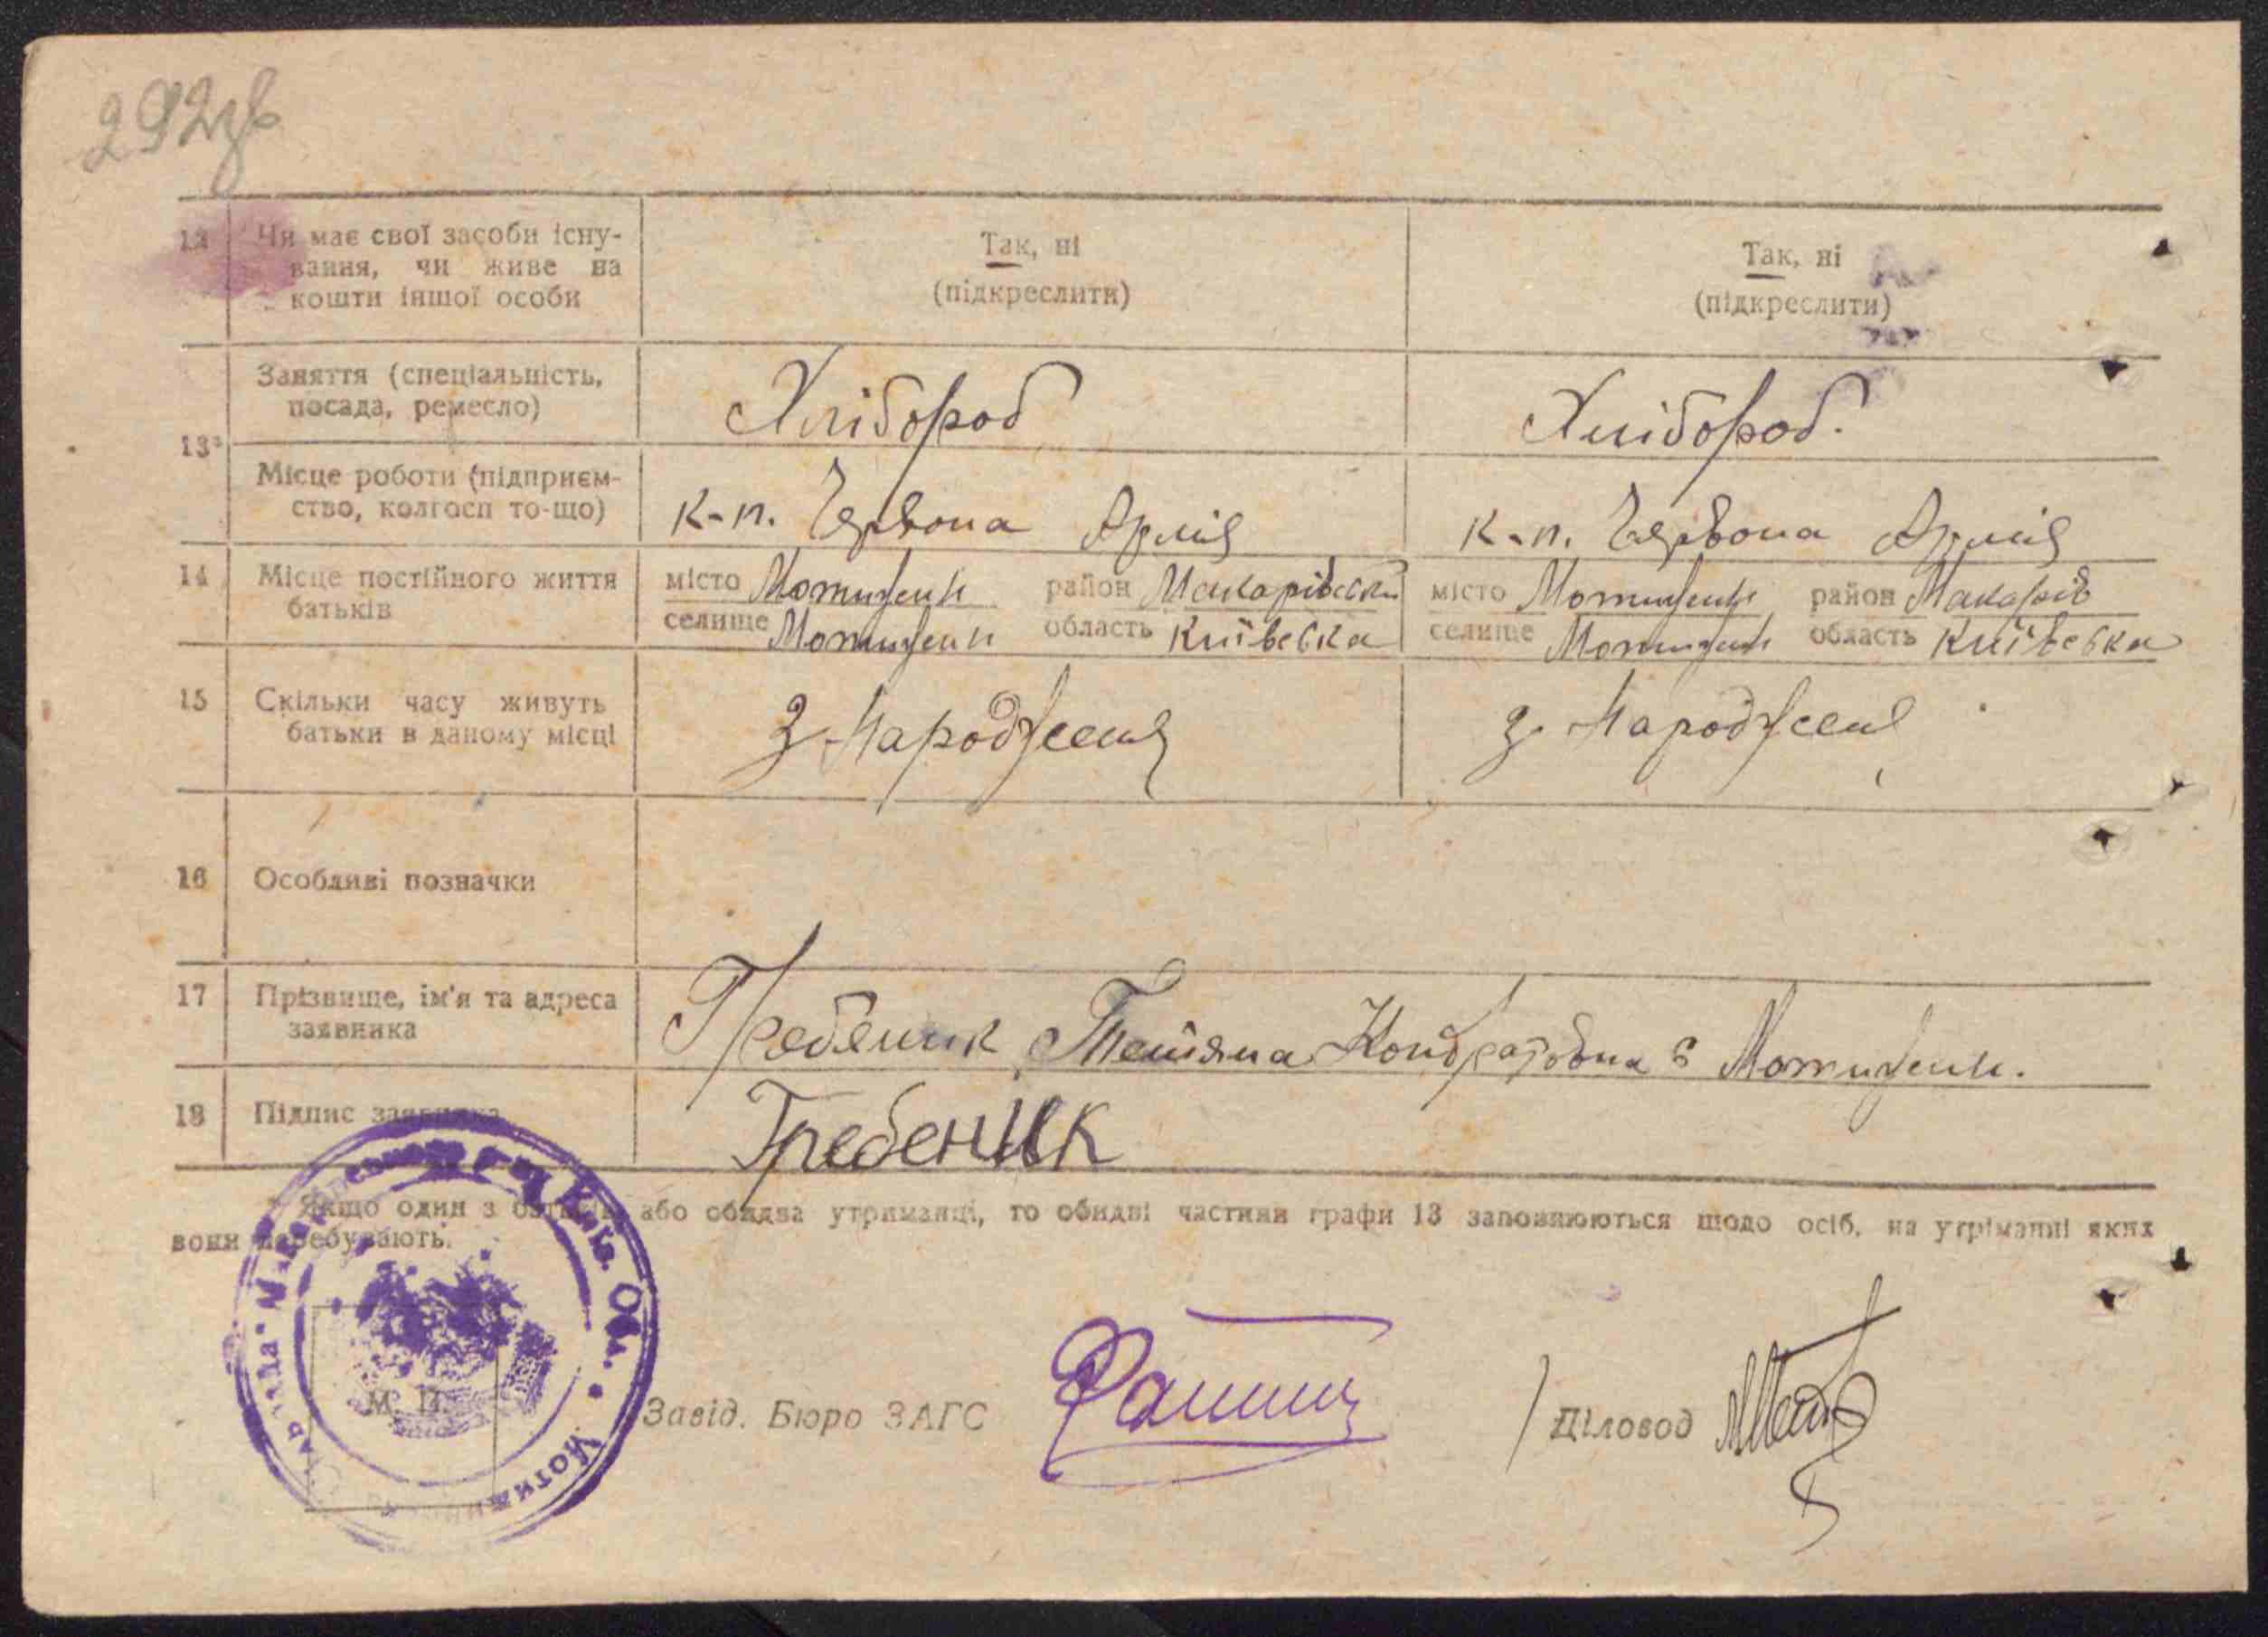 292зв
12 Чи має свої засоби існу- Так, ні Так, ні
вання, чи живе на (підкреслити) (підкреслити)
кошти іншої особи
Заняття (спеціальність, Хлібороб Хлібороб.
посада, ремесло)
13
Місце роботи (підприєм- к-п. Червона Армія к-п. Червона Армія
ство, колгосп то-що)
14 Місце постійного життя місто Мотижен район Макарівски місто Мотижен район Макарів
батьків селище Мотижен область Київська селище Мотижен область Київська
15 Скільки часу живуть З народженя З народженя
батьки в даному місці
16 Особливі позначки
17 Прізвище, ім'я та адреса Гребеник Тетяна Кондратовна с Мотижен.
заявника
18 Підпис заявника Гребеник
Якщо один з батьків або обидва утриманці, то обидві частини графи 13 заповнюються щодо осіб, на утриманні яких
вони перебувають.
Київ. Обл.
М. П.
Завід. Бюро ЗАГС
Діловод